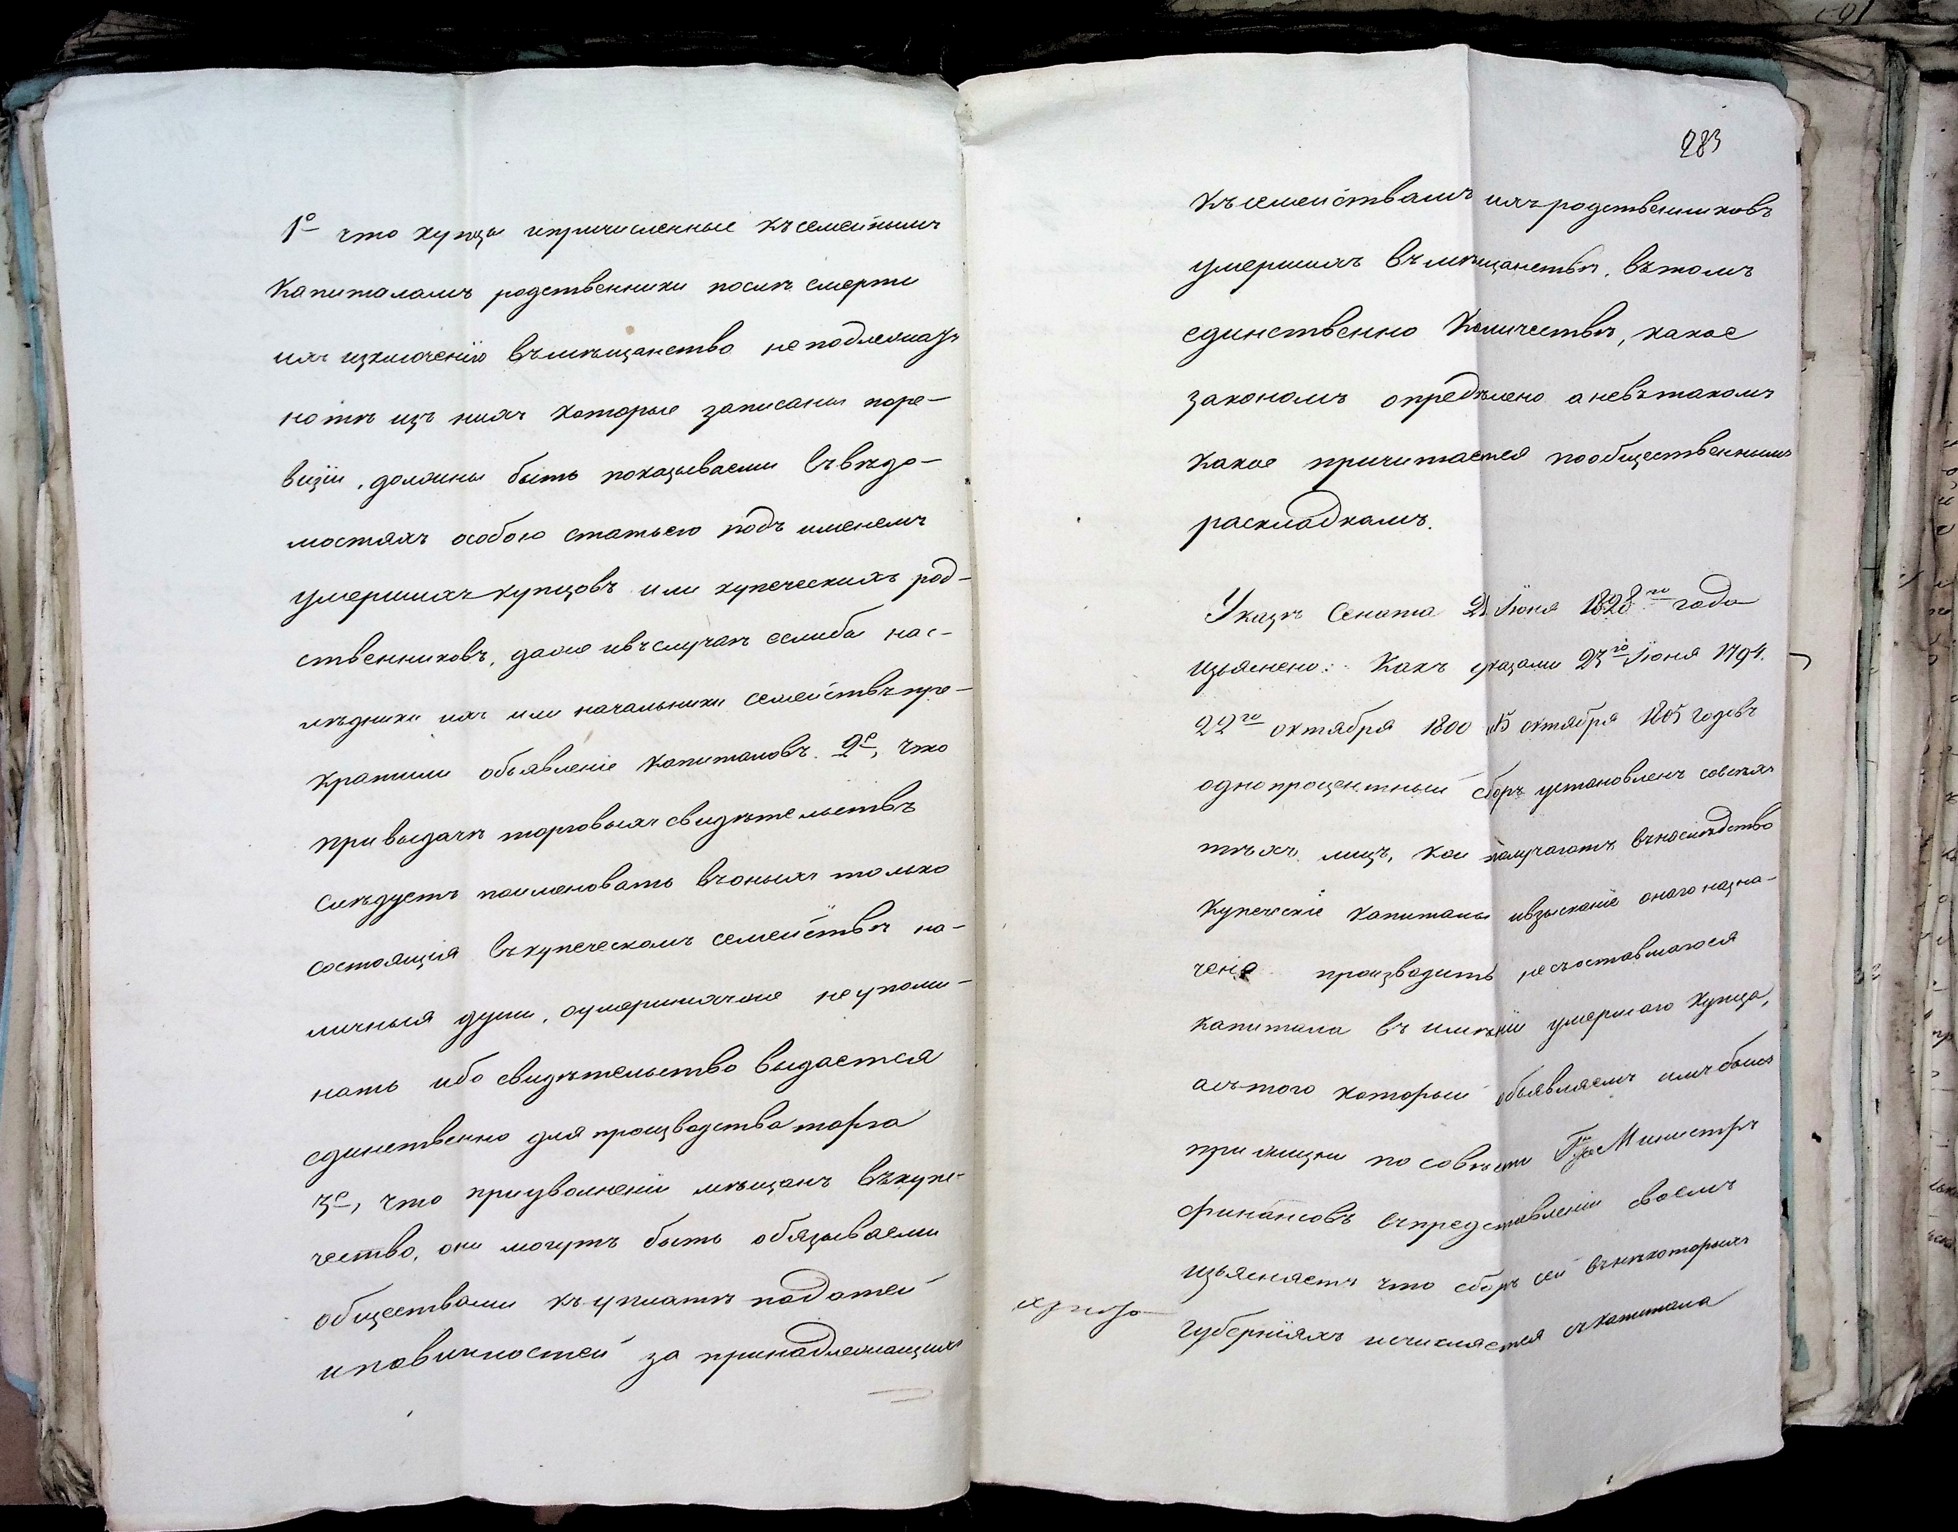 1е что купцы и причисленные къ семейнымъ
капиталамъ родственники послѣ смерти
ихъ изключенiю въ мѣщанство не подлежатъ
но тѣ изъ нихъ которые записаны по ре-
визiи, должны быть показываемы въ вѣдо-
мостяхъ особою статьею подъ именемъ
умершихъ купцовъ или купеческихъ род-
ственниковъ, даже и въ случаѣ еслибы нас-
лѣдники ихъ или начальники семействъ пре-
кратили объявленiе капиталовъ. 2е, что
при выдачѣ торговыхъ свидѣтельствъ
слѣдуетъ поименовать въ оныхъ только
состоящiя въ купеческомъ семействѣ на-
личныя души, о умершихъ же не упоми-
нать ибо свидѣтельство выдается
единственно для производства торга
3е, что при увольненiи мѣщанъ въ купе-
чество, они могутъ быть обязываемы
обществами къ уплатѣ податей
и повинностей за принадлежащихъ
283
къ семействамъ ихъ родственниковъ
умершихъ въ мѣщанствѣ, въ томъ
единственно количествѣ, какое
закономъ опредѣлено а не въ такомъ
какое причитается по общественнымъ
раскладкамъ.
Указъ Сената 21 Iюня 1828го года
изъяснено: Какъ указами 23го Iюня 1794.
22го октября 1800 и 15 октября 1805 годовъ
однопроцентный сборъ установленъ со всѣхъ
тѣхъ лицъ, кои получаютъ въ наслѣдство
Купеческiе капиталы и взысканiе онаго назна-
чено производить не съ оставшагося
капитала въ имѣнiи умершаго Купца,
а съ того который объявляемъ имъ былъ
при жизни по совѣсти Гнъ Министръ
финансовъ въ представленiи своемъ
изъясняетъ что сборъ сей въ нѣкоторыхъ
губернiяхъ исчисляется съ капитала